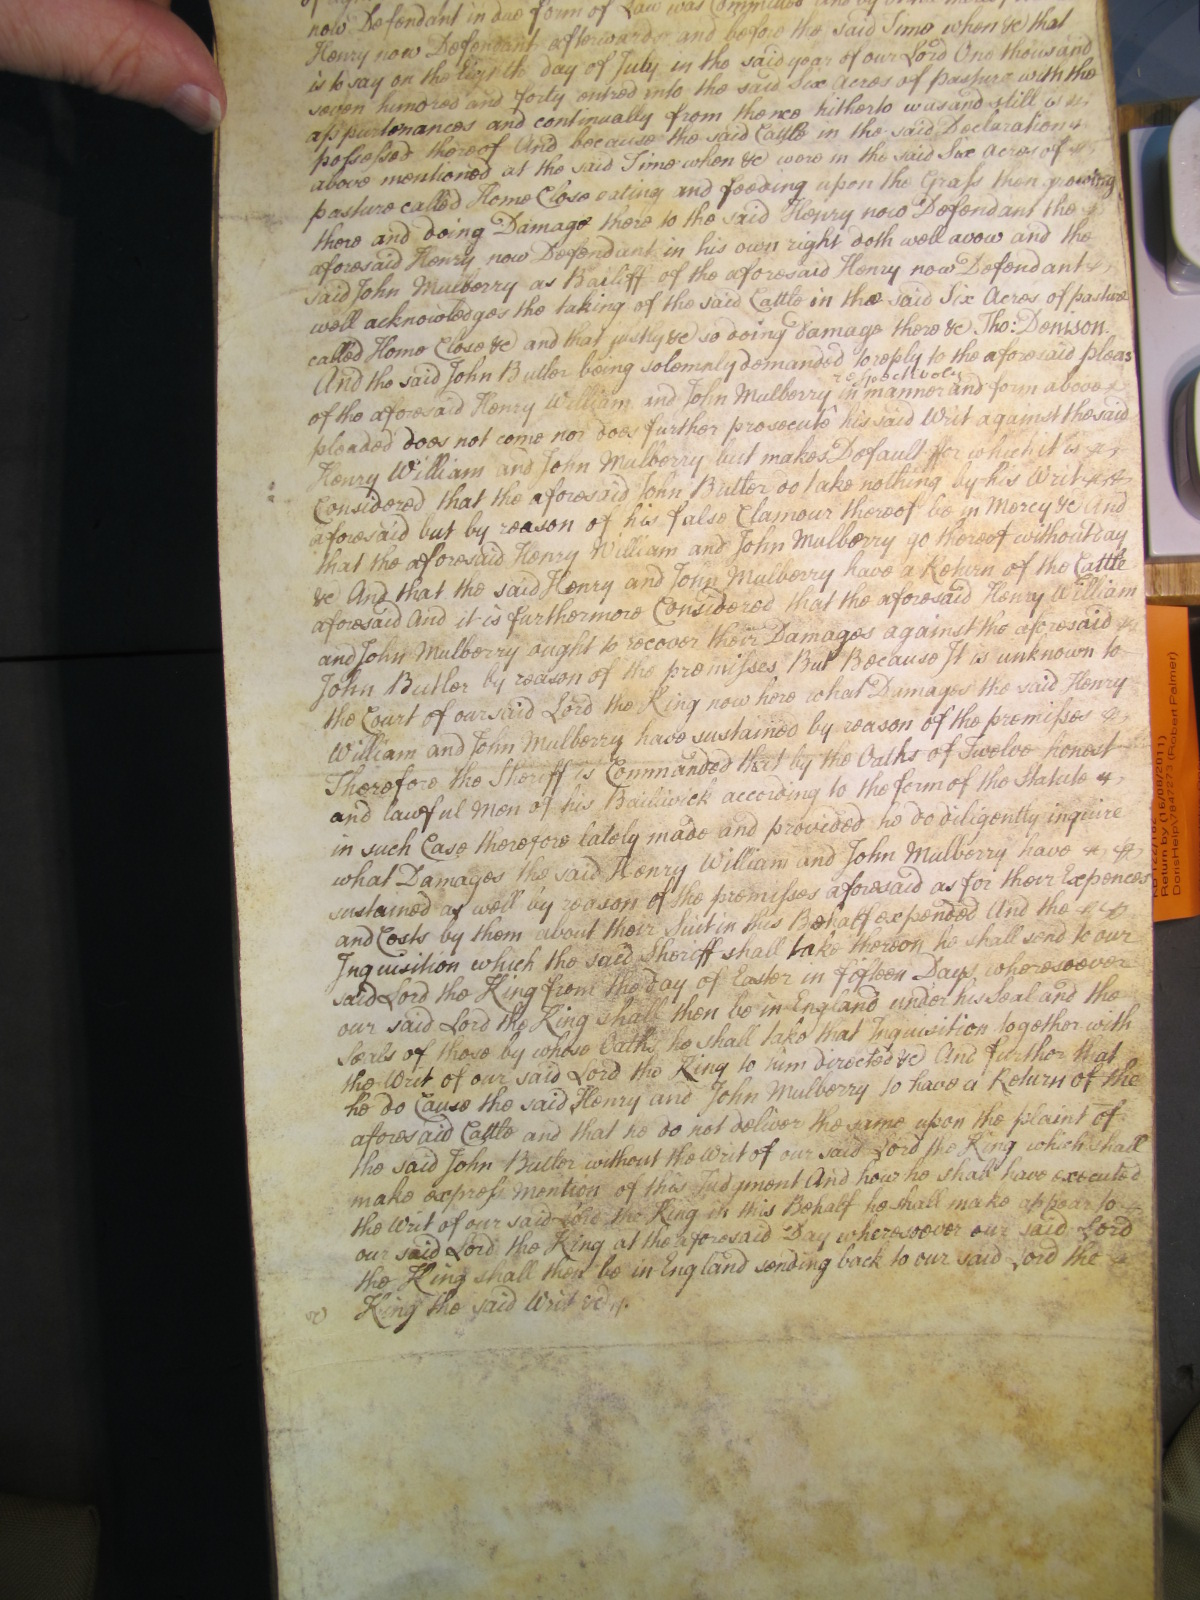 now Defendant in due form of Law was Committed and by
Henry now Defendant afterwards and before the said Time when &c that
is to say on the Eighth day of July in the said year of our Lord One thousand
seven hundred and forty entred into the said Six Acres of pasture with the
appurtenances and continually from thence hitherto was and still is
possessed thereof And because the said Cattle in the said Declaration
above mentioned at the said Time when &c were in the said Six Acres of
pasture called Home Close eating and feeding upon the Grass then growing
there and doing Damage there to the said Henry now Defendant the
aforesaid Henry now Defendant in his own right doth well avow and the
said John Mulberry as Bailiff of the aforesaid Henry now Defendant
well acknowledges the taking of the said Cattle in the said Six Acres of pasture
called Home Close &c and that justly &c so doing damage there &c Tho: Denison.
And the said John Butler being solemnly demanded to reply to the aforesaid pleas
respectively
of the aforesaid Henry William and John Mulberry in manner and form above
pleaded does not come nor does further prosecute his said Writ against the said
Henry William and John Mulberry but makes Default ffor which it is
Considered that the aforesaid John Butler do take nothing by his Writ
aforesaid but by reason of his false Clamour thereof be in Mercy &c And
that the aforesaid Henry William and John Mulberry go thereof without day
&c And that the said Henry and John Mulberry have a Return of the Cattle
aforesaid And it is furthermore Considered that the aforesaid Henry William
and John Mulberry ought to recover their Damages against the aforesaid
John Butler by reason of the premisses But Because It is unknown to
the Court of our said Lord the King now here what Damages the said Henry
William and John Mulberry have sustained by reason of the premisses
Therefore the Sheriff is Commanded that by the Oaths of Twelve honest
and lawful Men of his Bailiwick according to the form of the Statute
in such Case therefore lately made and provided he do diligently inquire
what Damages the said Henry William and John Mulberry have
sustained as well by reason of the premisses aforesaid as for their Expences
and Costs by them about their Suit in this Behalf expended And the
Inquisition which the said Sheriff shall take thereon he shall send to our
said Lord the King from the day of Easter in fifteen Days wheresoever
our said Lord the King shall then be in England under his Seal and the
Seals of those by whose Oaths he shall take that Inquisition together with
the Writ of our said Lord the King to him directed &c And further that
he do Cause the said Henry and John Mulberry to have a Return of the
aforesaid Cattle and that he do not deliver the same upon the plaint of
the said John Butler without the Writ of our said Lord the King which shall
make express Mention of this Judgment And how he shall have executed
the Writ of our said Lord the King in this Behalf he shall make appear to
our said Lord the King at the aforesaid Day wheresoever our said Lord
the King shall then be in England sending back to our said Lord the
King the said Writ &c
Return by (16/08/2011)
(Robert Palmer)